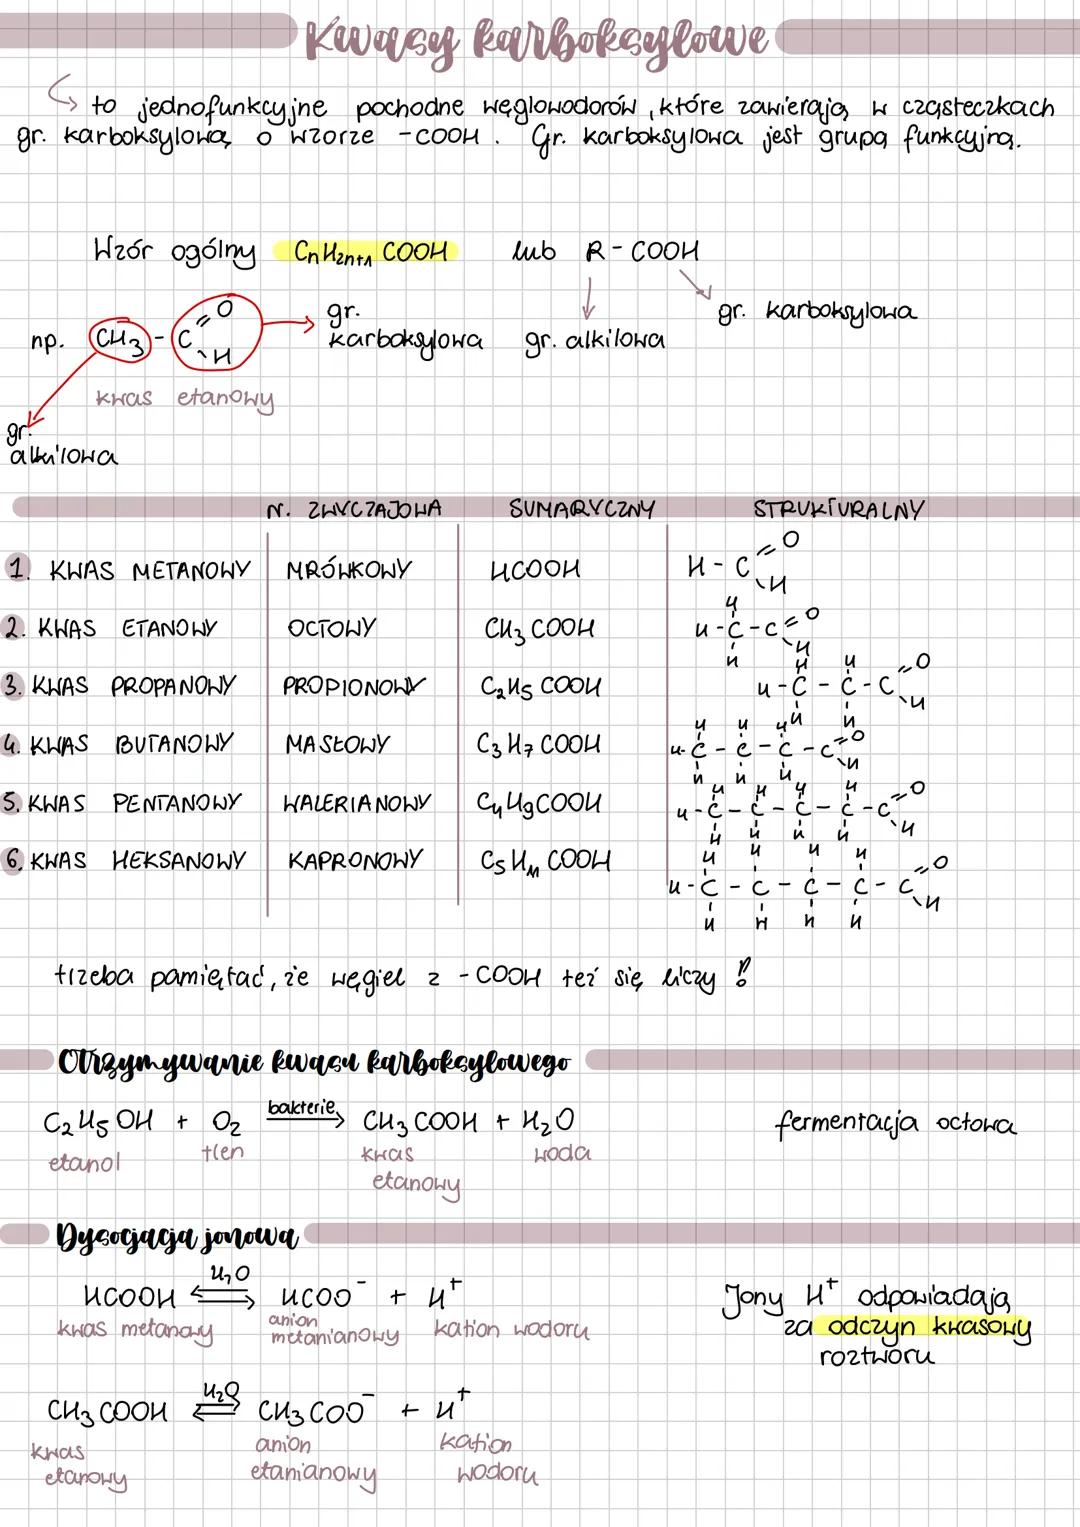 Kwasy karboksylowe
to jednofunkcyjne pochodne węglowodorów, które zawierają w cząsteczkach
gr. karboksylową o wzorze -COOH. Gr. karboksylowa jest grupą funkcyjną.
Wzór ogólny CnH2n+1 COOH lub R - COOH
np. CH3 - C =O - H
gr. karboksylowa
gr. alkilowa
gr. karboksylowa
kwas etanowy
gr. alkilowa
N. ZWYCZAJOWA SUMARYCZNY STRUKTURALNY
1. KWAS METANOWY MRÓWKOWY HCOOH H - C =O - H
2. KWAS ETANOWY OCTOWY CH3 COOH H - C - C =O - H
3. KWAS PROPANOWY PROPIONOWY C2H5 COOH H - C - C - C =O - H
4. KWAS BUTANOWY MASŁOWY C3H7 COOH H - C - C - C - C =O - H
5. KWAS PENTANOWY WALERIANOWY C4H9COOH H - C - C - C - C - C =O - H
6. KWAS HEKSANOWY KAPRONOWY C5H11 COOH H - C - C - C - C - C =O - H
trzeba pamiętać, że węgiel z -COOH też się liczy !!
Otrzymywanie kwasu karboksylowego
C2H5OH + O2 bakterie→ CH3COOH + H2O fermentacja octowa
etanol tlen kwas etanowy woda
Dysocjacja jonowa
HCOOH ⇌ H2O HCOO⁻ + H⁺
kwas metanowy anion metanianowy kation wodoru
Jony H⁺ odpowiadają
za odczyn kwasowy
roztworu
CH3COOH ⇌ H2O CH3COO⁻ + H⁺
kwas etanowy anion etanianowy kation wodoru